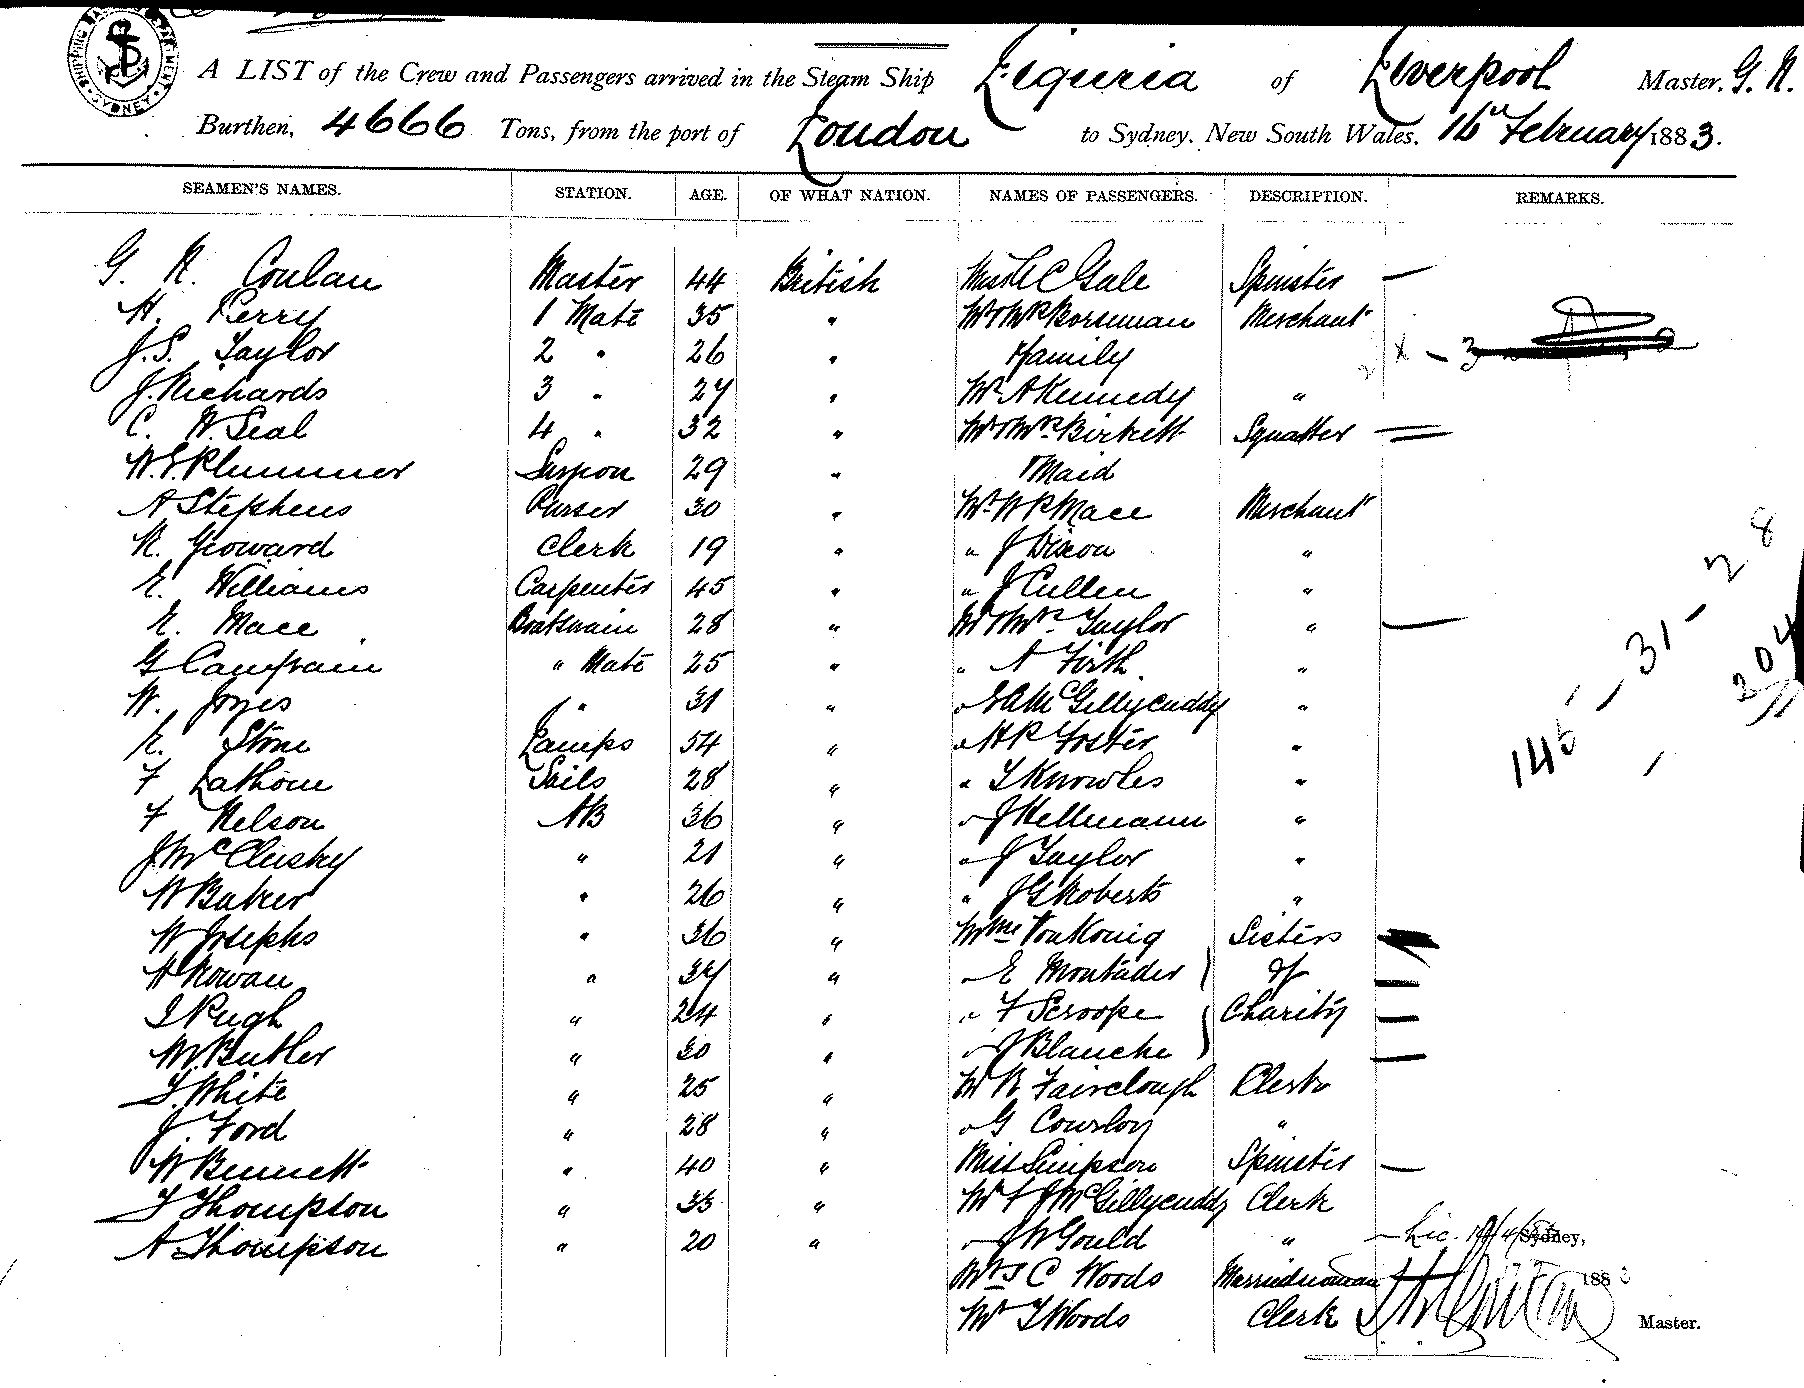 SHIPPING MASTER'S DEPARTMENT SYDNEY
A LIST of the Crew and Passengers arrived in the Steam Ship Liguria of Liverpool Master, G. N.
Burthen, 4666 Tons, from the port of London to Sydney, New South Wales, 16th February 1883.
SEAMEN'S NAMES. STATION. AGE. OF WHAT NATION. NAMES OF PASSENGERS. DESCRIPTION. REMARKS.
G. N. Conlan Master 44 British Miss C Gale Spinster —
H. Perry 1 Mate 35 " Mr & Mrs Borseman Merchant
J. S. Taylor 2 " 26 " & family x - 3
J. Richards 3 " 27 " Mr A Kennedy "
C. W. Seal 4 " 32 " Mr & Mrs Birkett Squatter =
W. E. Plummer Surgeon 29 " & Maid
A Stephens Purser 30 " Mr W P Mace Merchant
R. Howard Clerk 19 " " J Dixon "
E. Williams Carpenter 45 " " J Cullen "
E. Mace Boatswain 28 " Mr & Mrs Taylor " —
G Campain " Mate 25 " " A Firth "
W. Jones " 31 " " McGillycuddy "
E. Stone Lamps 54 " " H P Foster "
F Lathom Sails 28 " " T Knowles "
F Nelson AB 36 " " J Hellmann "
J. McClusky " 21 " " J Taylor "
W Baker " 26 " " J G Roberts "
W Josephs " 36 " Von Konig Sisters —
H Rowan " 34 " " E Montader of —
I Pugh " 24 " " F Scroope Charity —
W. Butler " 30 " " J Blanche —
T. White " 25 " M R Fairclough Clerk
J. Ford " 28 " " G Cowley "
W Bennett " 40 " Miss Simpson Spinster —
T Thompson " 33 " Mr J McGillycuddy Clerk
A. Thompson " 20 " " J W Gould " Sydney,
Mrs C Woods Married woman 188
Mr T Woods Clerk Master.
145 - 31 - 28
204